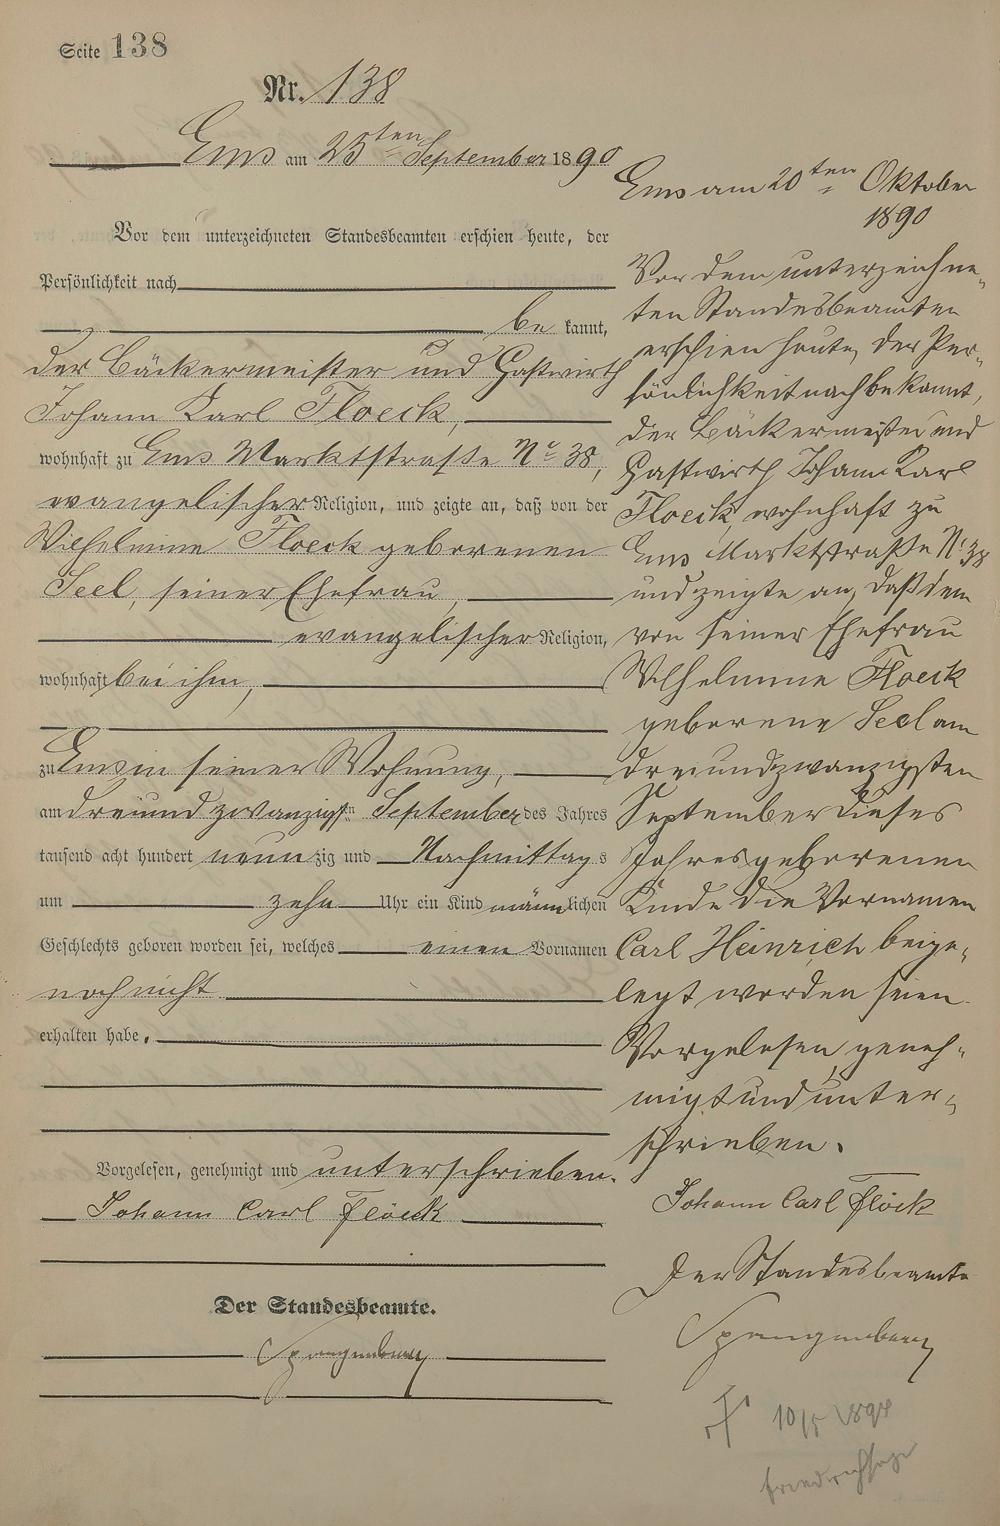 Seite 138
Nr. 138
Ems am 25ten September 1890
Vor dem unterzeichneten Standesbeamten erschien heute, der
Persönlichkeit nach
be kannt,
der Bäckermeister und Gastwirth
Johann Karl Floeck,
wohnhaft zu Ems Marktstraße No 38,
evangelischer Religion, und zeigte an, daß von der
Wilhelmine Floeck geborenen
Seel, seiner Ehefrau,
evangelischer Religion,
wohnhaft bei ihm,
zu Ems in seiner Wohnung,
am dreiundzwanzigsten September des Jahres
tausend acht hundert neun zig und Nachmittags
um zehn Uhr ein Kind männlichen
Geschlechts geboren worden sei, welches einen Vornamen
noch nicht
erhalten habe.
Vorgelesen, genehmigt und unterschrieben.
Johann Carl Flöck
Der Standesbeamte.
Spangenberg
Ems am 20ten Oktober
1890
Vor dem unterzeichne-
ten Standesbeamten
erschien heute, der Per-
sönlichkeit nach bekannt,
der Bäckermeister und
Gastwirth Johann Karl
Floeck, wohnhaft zu
Ems Marktstraße No 38
und zeigte an, daß dem
von seiner Ehefrau
Wilhelmine Floeck
geborene Seel am
dreiundzwanzigsten
September dieses
Jahres geborenen
Kinde die Vornamen
Carl Heinrich beige-
legt worden seien.
Vorgelesen, geneh-
migt und unter-
schrieben.
Johann Carl Flöck
Der Standesbeamte
Spangenberg
10/5